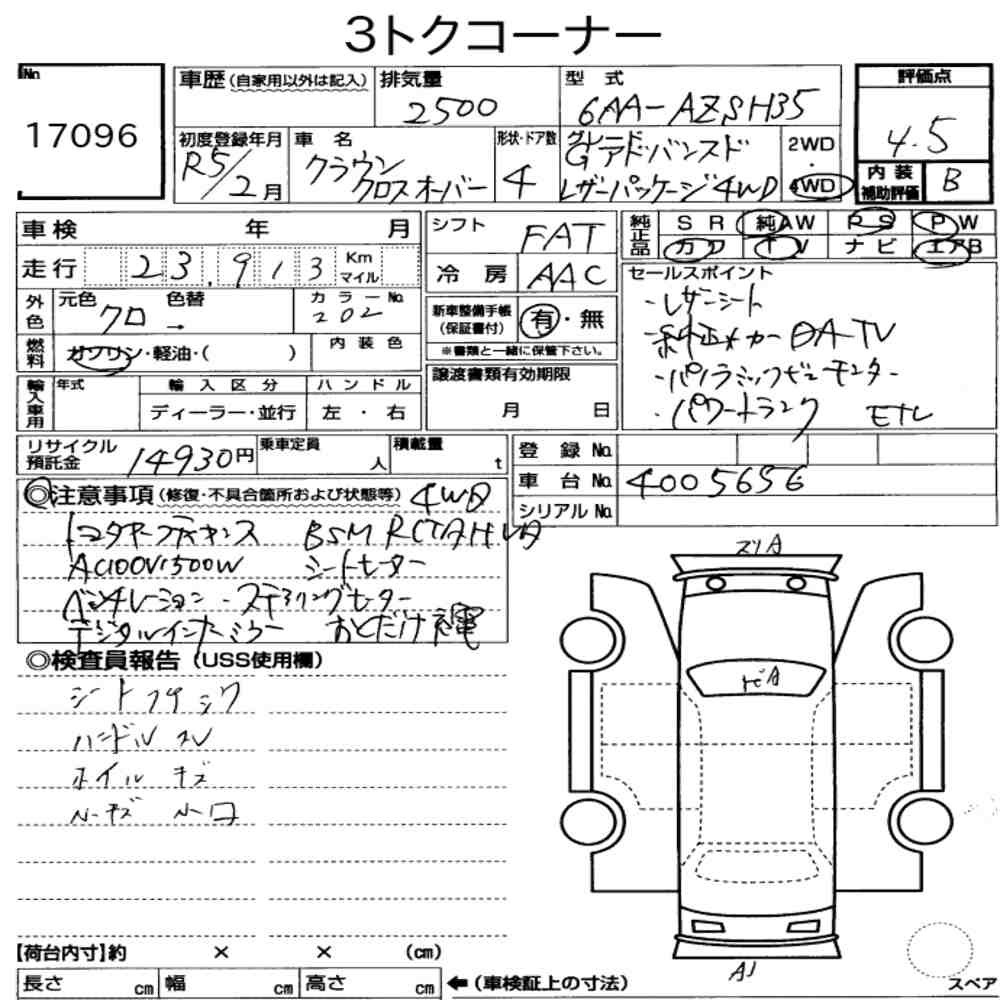 3トクコーナー
No
17096
車歴 (自家用以外は記入)
排気量
2500
型式
6AA-AZSH35
評価点
4.5
初度登録年月
R5/2月
車名
クラウン
クロスオーバー
形状・ドア数
4
グレード
Gアドバンスド
レザーパッケージ4WD
2WD
・
4WD
内装
補助評価
B
車検 年 月
シフト
FAT
純正品
SR 純AW PS PW
カワ TV ナビ エアB
走行 23,913 Km マイル
冷房 AAC
セールスポイント
・レザーシート
・純正メーカーDA-TV
・パノラミックビューモニター
・パワートランク ETC
外色
元色 色替
クロ →
カラーNo.
202
新車整備手帳
(保証書付)
有・無
※書類と一緒に保管下さい。
燃料
ガソリン・軽油・( )
内装色
譲渡書類有効期限
月 日
輸入車用
年式
輸入区分
ディーラー・並行
ハンドル
左・右
リサイクル
預託金
14930円
乗車定員
人
積載量
t
登録No.
車台No. 4005656
シリアルNo.
◎注意事項(修復・不具合箇所および状態等) 4WD
BSM RCTA HUD
AC100V1500W シートヒーター
ベンチレーション・ステアリングヒーター
デジタルインナーミラー おくだけ充電
◎検査員報告 (USS使用欄)
ハンドル スレ
ホイル キズ
スリA
トビA
A1
【荷台内寸】約 × × (cm)
長さ cm 幅 cm 高さ cm
←(車検証上の寸法)
スペア